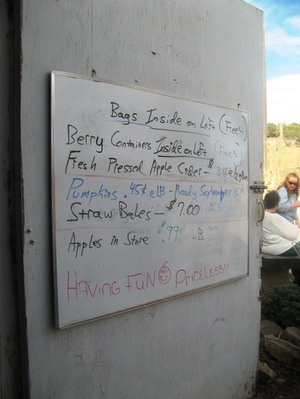 Bags Inside on Left (Free)
Berry Containers Inside on Left (Free)
Fresh Pressed Apple Cider - $
Pumpkins .45¢ LB - Ready September
Straw Bales - $7.00
Apples in Store .99¢ LB
HAVING FUN PRICELESS!!